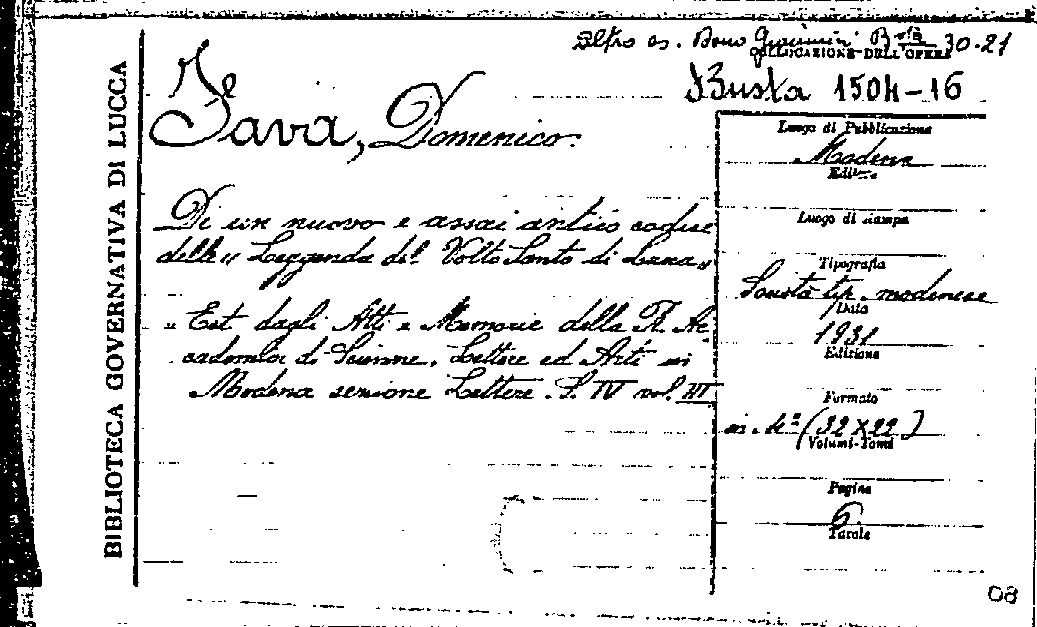 BIBLIOTECA GOVERNATIVA DI LUCCA
altro es. Bono Giannini Bta 30-21
COLLOCAZIONE DELL'OPERA
Busta 1504-16
Fava, Domenico.
Di un nuovo e assai antico codice
della "Leggenda del Volto Santo di Lucca"
"Est. dagli Atti e Memorie della R. Ac-
cademia di Scienze, Lettere ed Arti in
Modena sezione Lettere. S. IV vol. III
Luogo di Pubblicazione
Modena
Editore
Luogo di stampa
Tipografia
Società tip. modenese
Data
1931
Edizione
Formato
in 4º (32 x 22)
Volumi-Tomi
Pagine
6.
Tavole
08